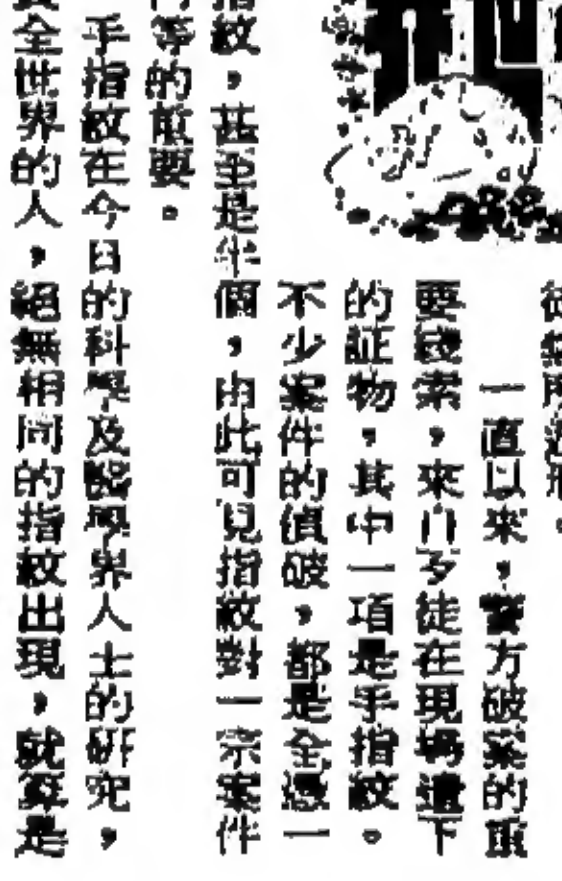 一直以來，警方破案的重
要綫索，來自歹徒在現場遺下
的証物，其中一項是手指紋。
不少案件的偵破，都是全憑一
指紋，甚至是半個，由此可見指紋對一宗案件
等的重要。
手指紋在今日的科學及醫學界人士的研究，
全世界的人，絕無相同的指紋出現，就算是